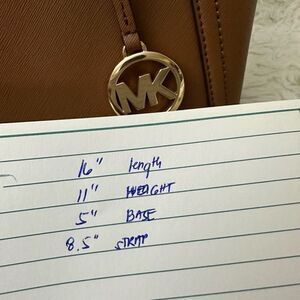 MK
16" length
11" HEIGHT
5" BASE
8.5" STRAP